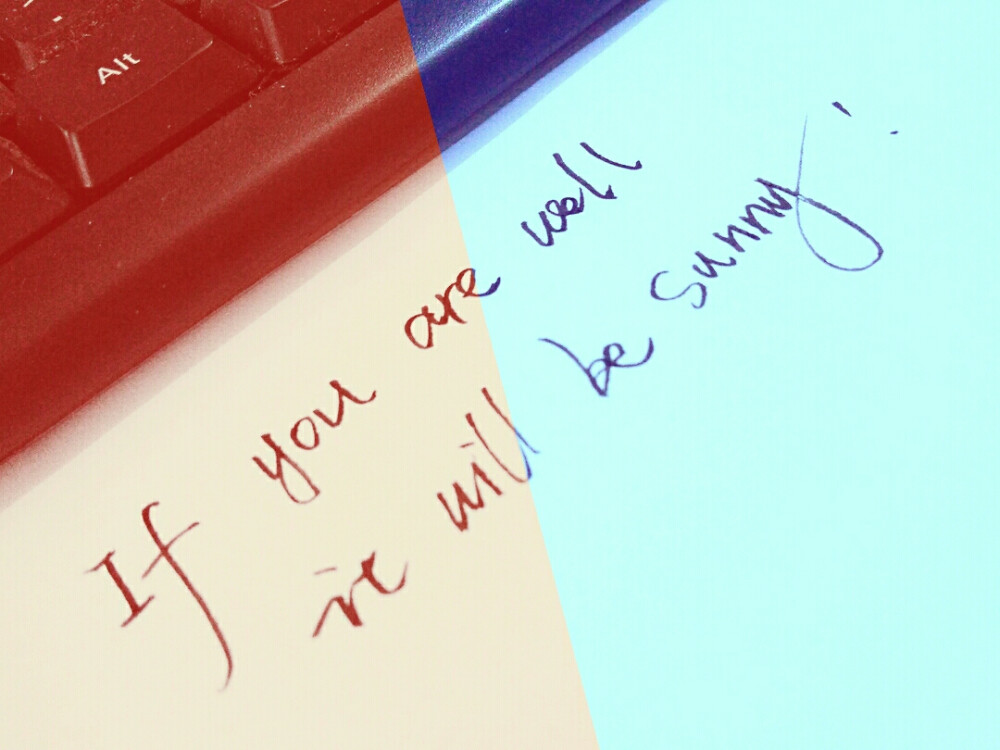 Alt
If you are well
it will be sunny!